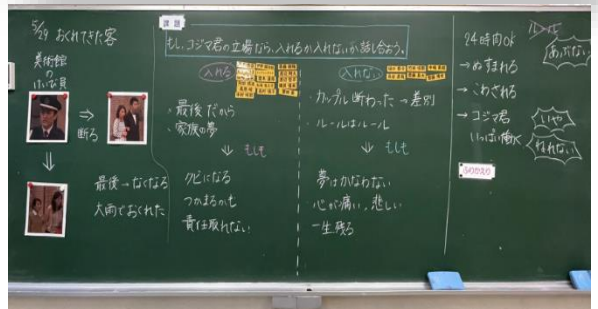 5/29 おくれてきた客
美術館
の
けいび員
⇒
断る
⇓
最後→なくなる
大雨でおくれた
課題
もし、コジマ君の立場なら、入れるか入れないか話し合おう。
入れる
・最後だから
・家族の夢
⇓ もしも
クビになる
つかまるかも
責任取れない
入れない
・カップル断わった→差別
・ルールはルール
⇓ もしも
夢はかなわない
心が痛い、悲しい
一生残る
ルール
24時間OK
あぶない
→ぬすまれる
→こわされる
→コジマ君
いっぱい働く
いや
ねれない
ふりかえり